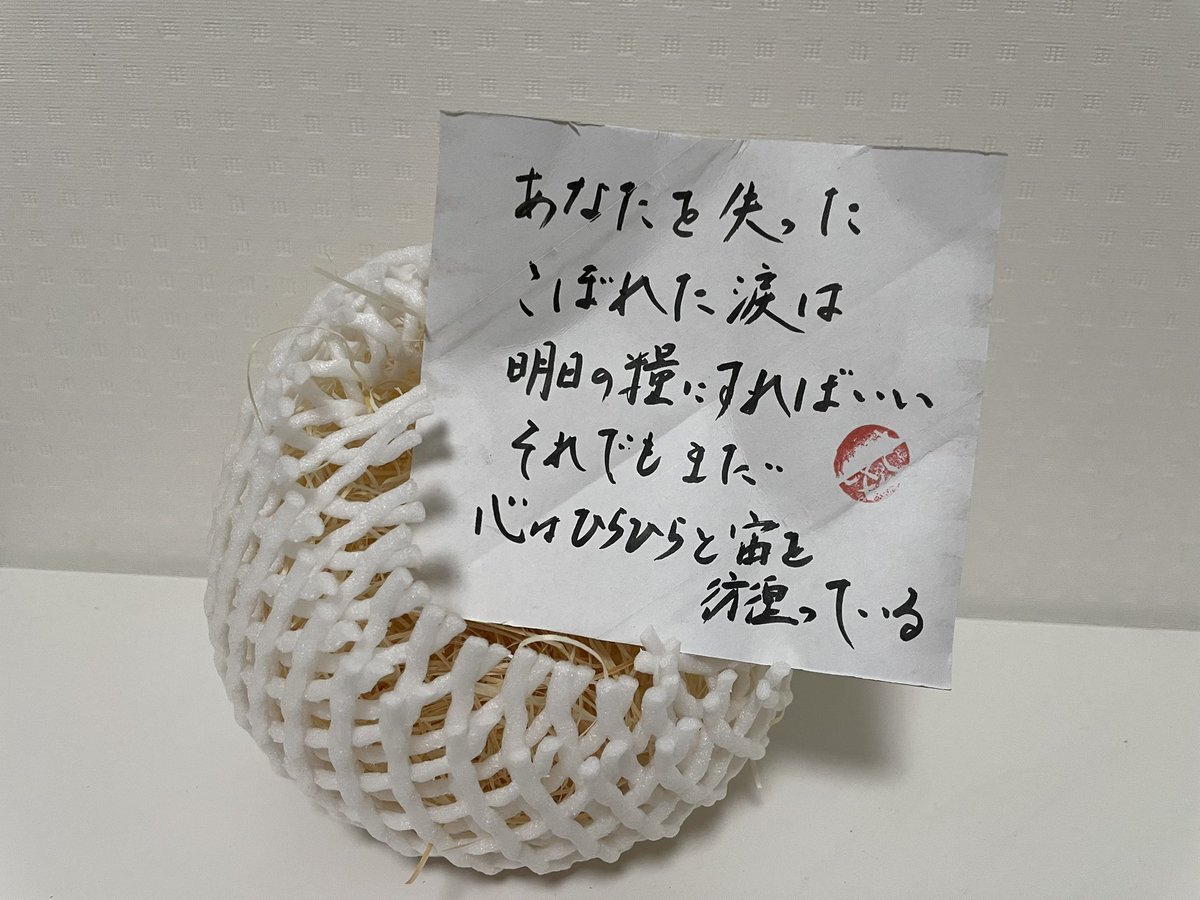 あなたを失った
こぼれた涙は
明日の糧にすればいい
それでもまだ
心はひらひらと宙を
彷徨っている